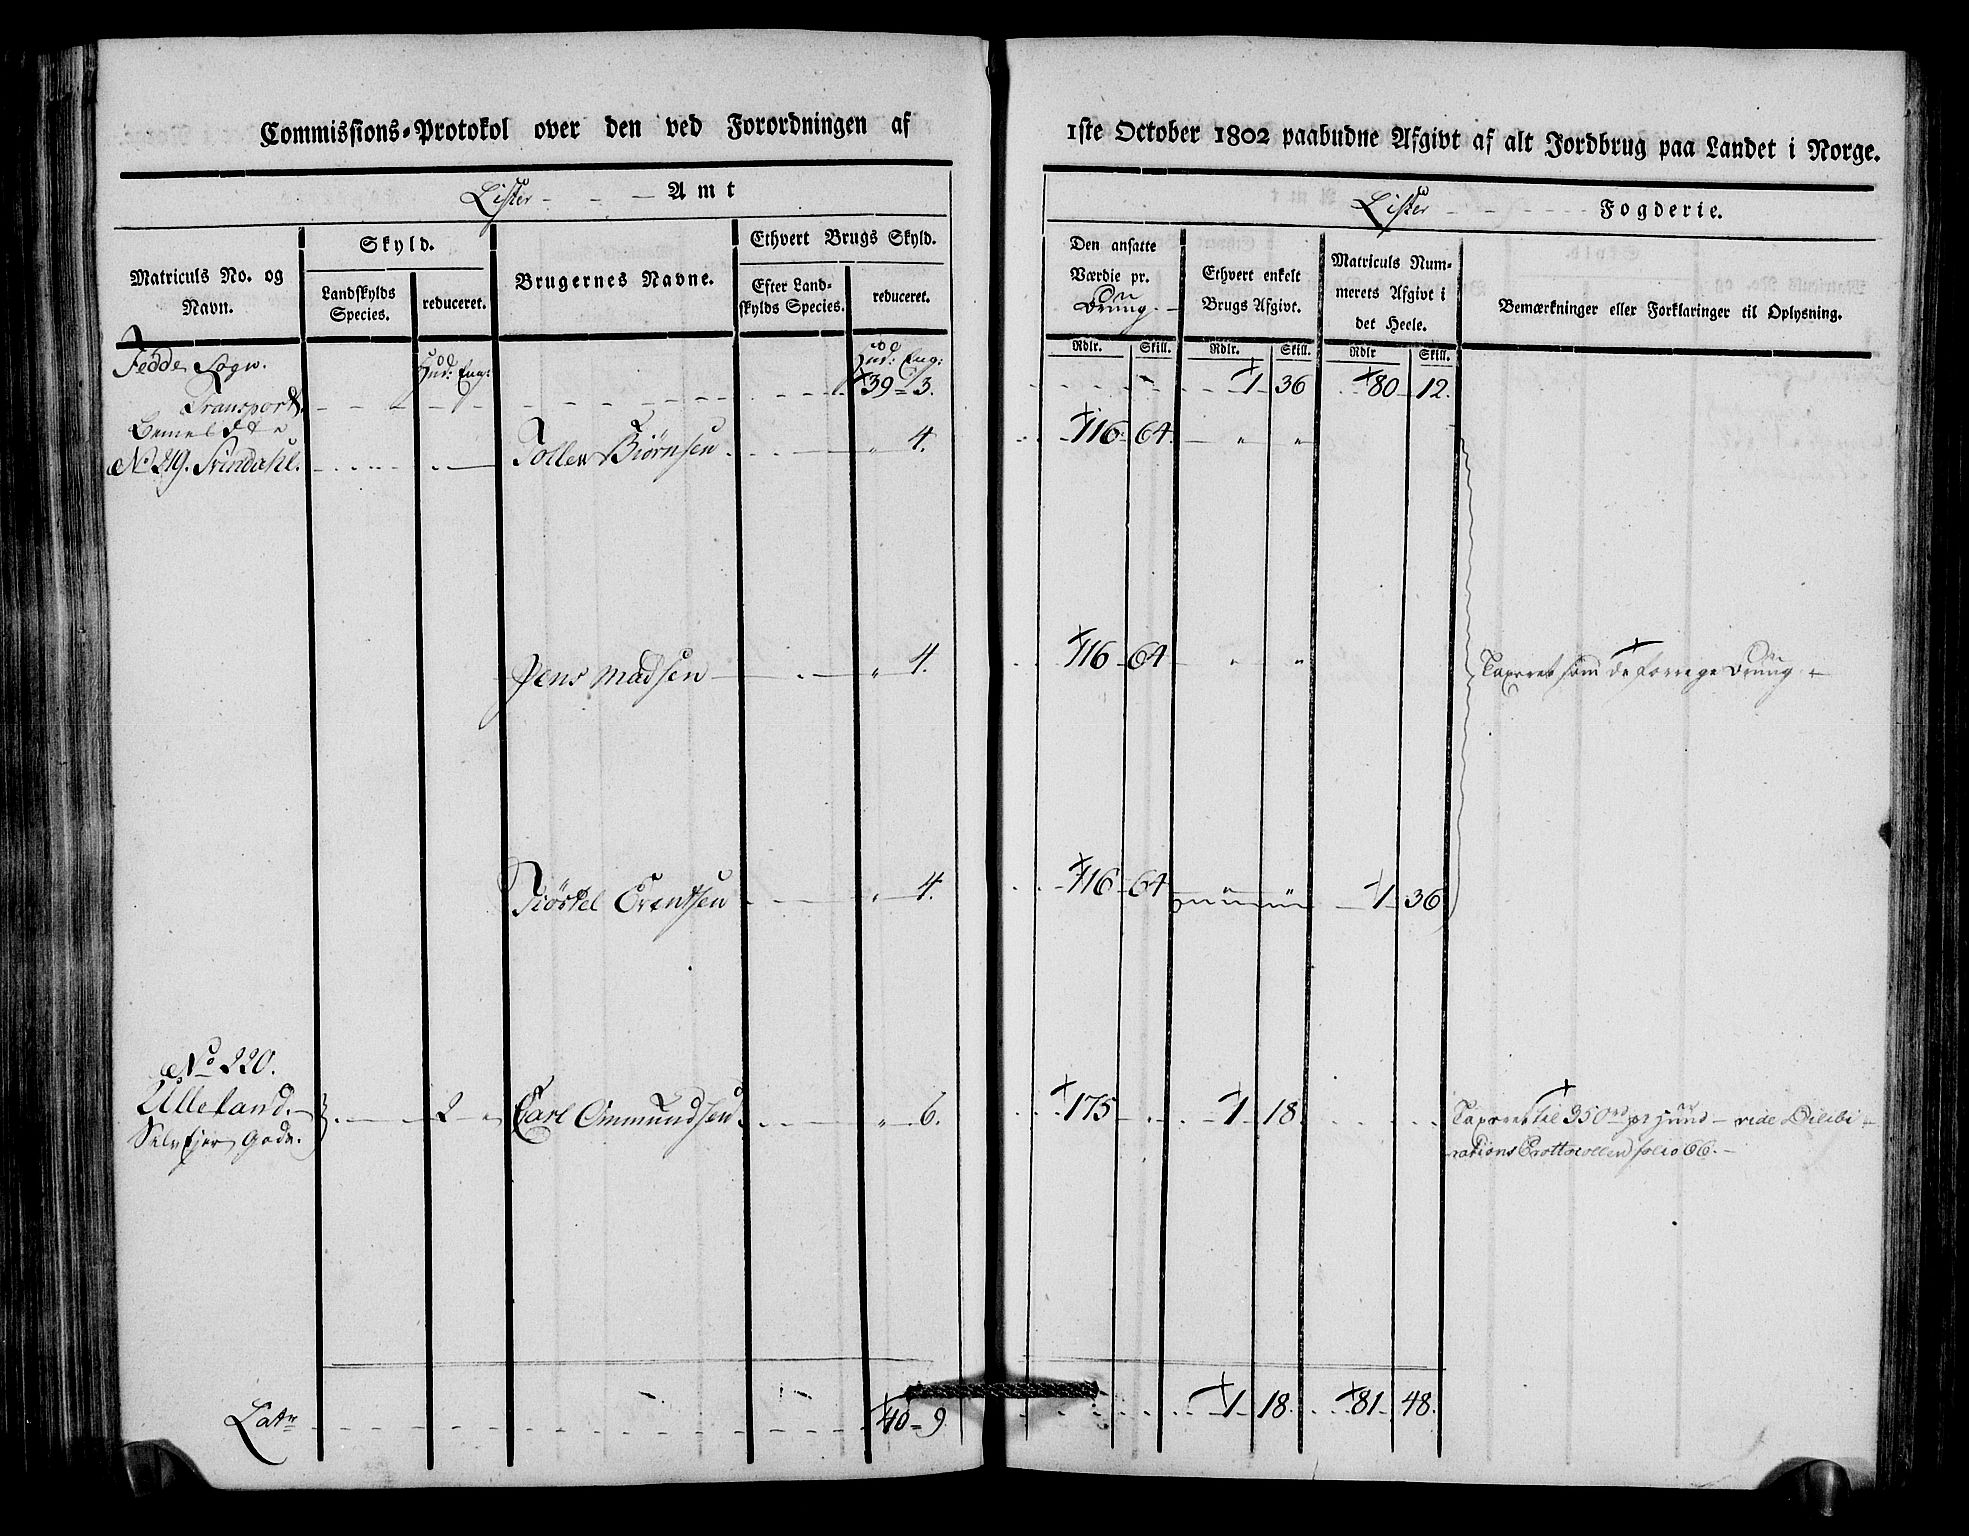 Commissions-Protokol over den ved Forordningen af
1ste October 1802 paabudne Afgivt af alt Jordbrug paa Landet i Norge.
Lister - - - Amt
Lister - - - Fogderie.
Matriculs No. og Navn.
Skyld.
Landskylds Species.
reduceret.
Brugernes Navne.
Ethvert Brugs Skyld.
Efter Landskylds Species.
reduceret.
Den ansatte Værdie pr.
Ethvert enkelt Brugs Afgivt.
Matriculs Nummerets Afgivt i det Heele.
Bemærkninger eller Forklaringer til Oplysning.
Rdlr. Skill. Rdlr. Skill. Rdlr Skill.
Fedde Sogn. Hud: Eng: Hud: Eng:
Transport 39 - 3. 1 36 80 12.
No 219. Svindahl. Tollev Biörnsen " 4. 116 64 " "
Jens Madsen " 4. 116 64 " " Taxeret som de forrige
Tiöstel Erentsen " 4. 116 64 1 36
No 220.
Ulleland. 2 " Carl Ommundsen " 6. 175 1 18 Taxeret til 350 rd pr hund - vide Dilibi-
Selvejer Gods. rations Prottocollen folio 66. -
Latr 40 - 9 1 18 81 48.